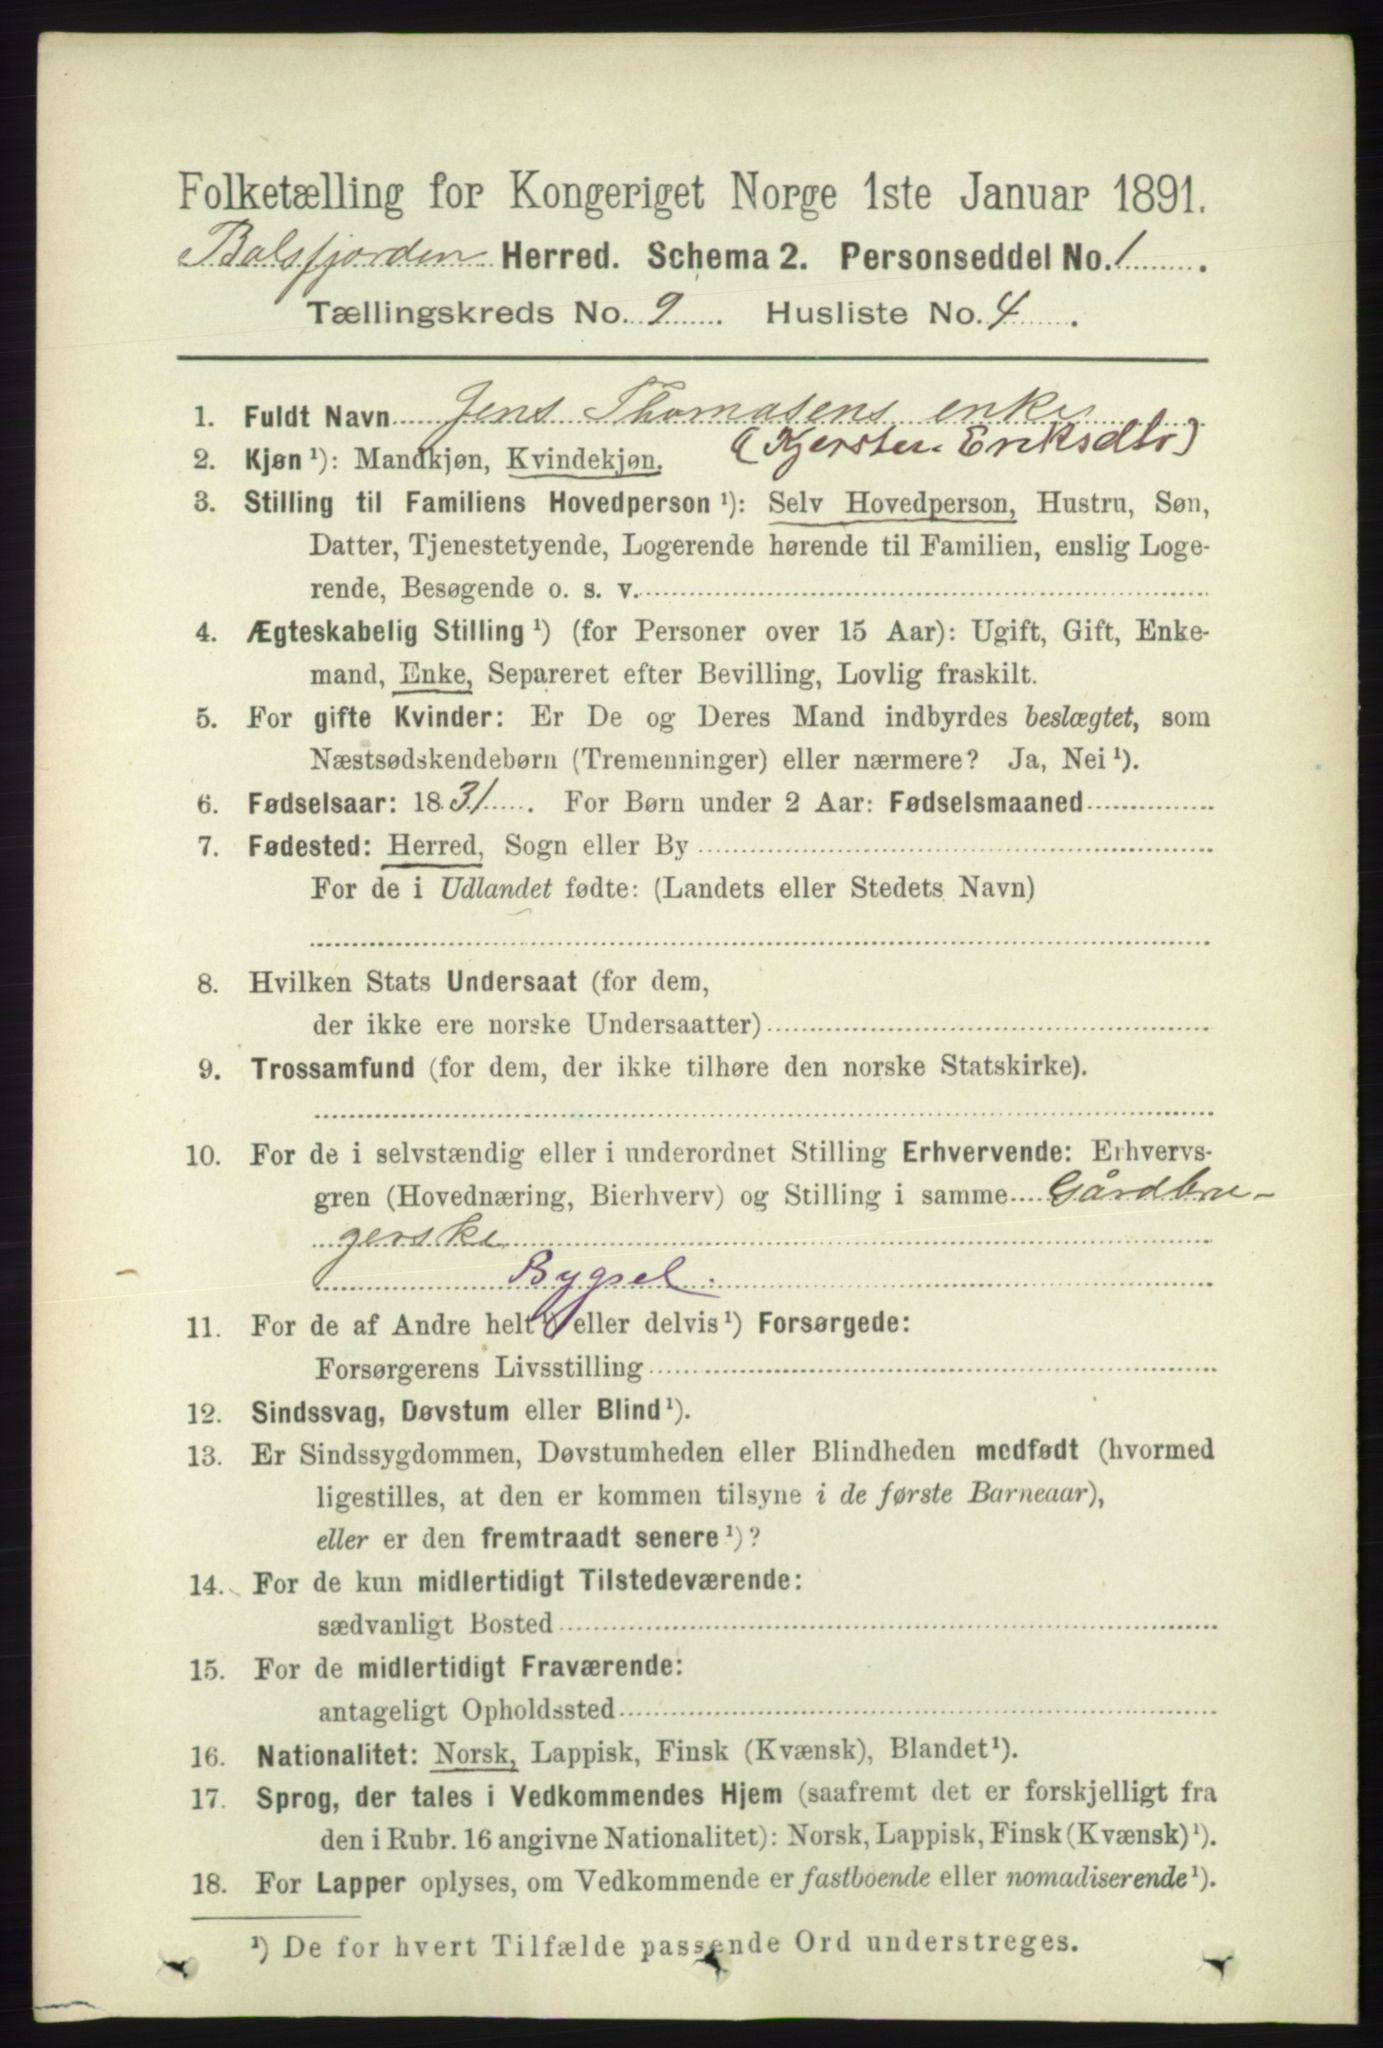 Folketælling for Kongeriget Norge 1ste Januar 1891.
Balsfjorden Herred. Schema 2. Personseddel No. 1.
Tællingskreds No. 9. Husliste No. 4.
1. Fuldt Navn Jens Thomasens enke
(Kjersten Eriksdtr)
2. Kjøn¹): Mandkjøn, Kvindekjøn.
3. Stilling til Familiens Hovedperson¹): Selv Hovedperson, Hustru, Søn,
Datter, Tjenestetyende, Logerende hørende til Familien, enslig Loge-
rende, Besøgende o. s. v.
4. Ægteskabelig Stilling¹) (for Personer over 15 Aar): Ugift, Gift, Enke-
mand, Enke, Separeret efter Bevilling, Lovlig fraskilt.
5. For gifte Kvinder: Er De og Deres Mand indbyrdes beslægtet, som
Næstsødskendebørn (Tremenninger) eller nærmere? Ja, Nei¹).
6. Fødselsaar: 1831. For Børn under 2 Aar: Fødselsmaaned
7. Fødested: Herred, Sogn eller By
For de i Udlandet fødte: (Landets eller Stedets Navn)
8. Hvilken Stats Undersaat (for dem,
der ikke ere norske Undersaatter)
9. Trossamfund (for dem, der ikke tilhøre den norske Statskirke).
10. For de i selvstændig eller i underordnet Stilling Erhvervende: Erhvervs-
gren (Hovednæring, Bierhverv) og Stilling i samme Gårdbru-
gerske
Bygsel.
11. For de af Andre helt¹) eller delvis¹) Forsørgede:
Forsørgerens Livsstilling
12. Sindssvag, Døvstum eller Blind¹).
13. Er Sindssygdommen, Døvstumheden eller Blindheden medfødt (hvormed
ligestilles, at den er kommen tilsyne i de første Barneaar),
eller er den fremtraadt senere¹)?
14. For de kun midlertidigt Tilstedeværende:
sædvanligt Bosted
15. For de midlertidigt Fraværende:
antageligt Opholdssted
16. Nationalitet: Norsk, Lappisk, Finsk (Kvænsk), Blandet¹).
17. Sprog, der tales i Vedkommendes Hjem (saafremt det er forskjelligt fra
den i Rubr. 16 angivne Nationalitet): Norsk, Lappisk, Finsk (Kvænsk)¹).
18. For Lapper oplyses, om Vedkommende er fastboende eller nomadiserende¹).
¹) De for hvert Tilfælde passende Ord understreges.